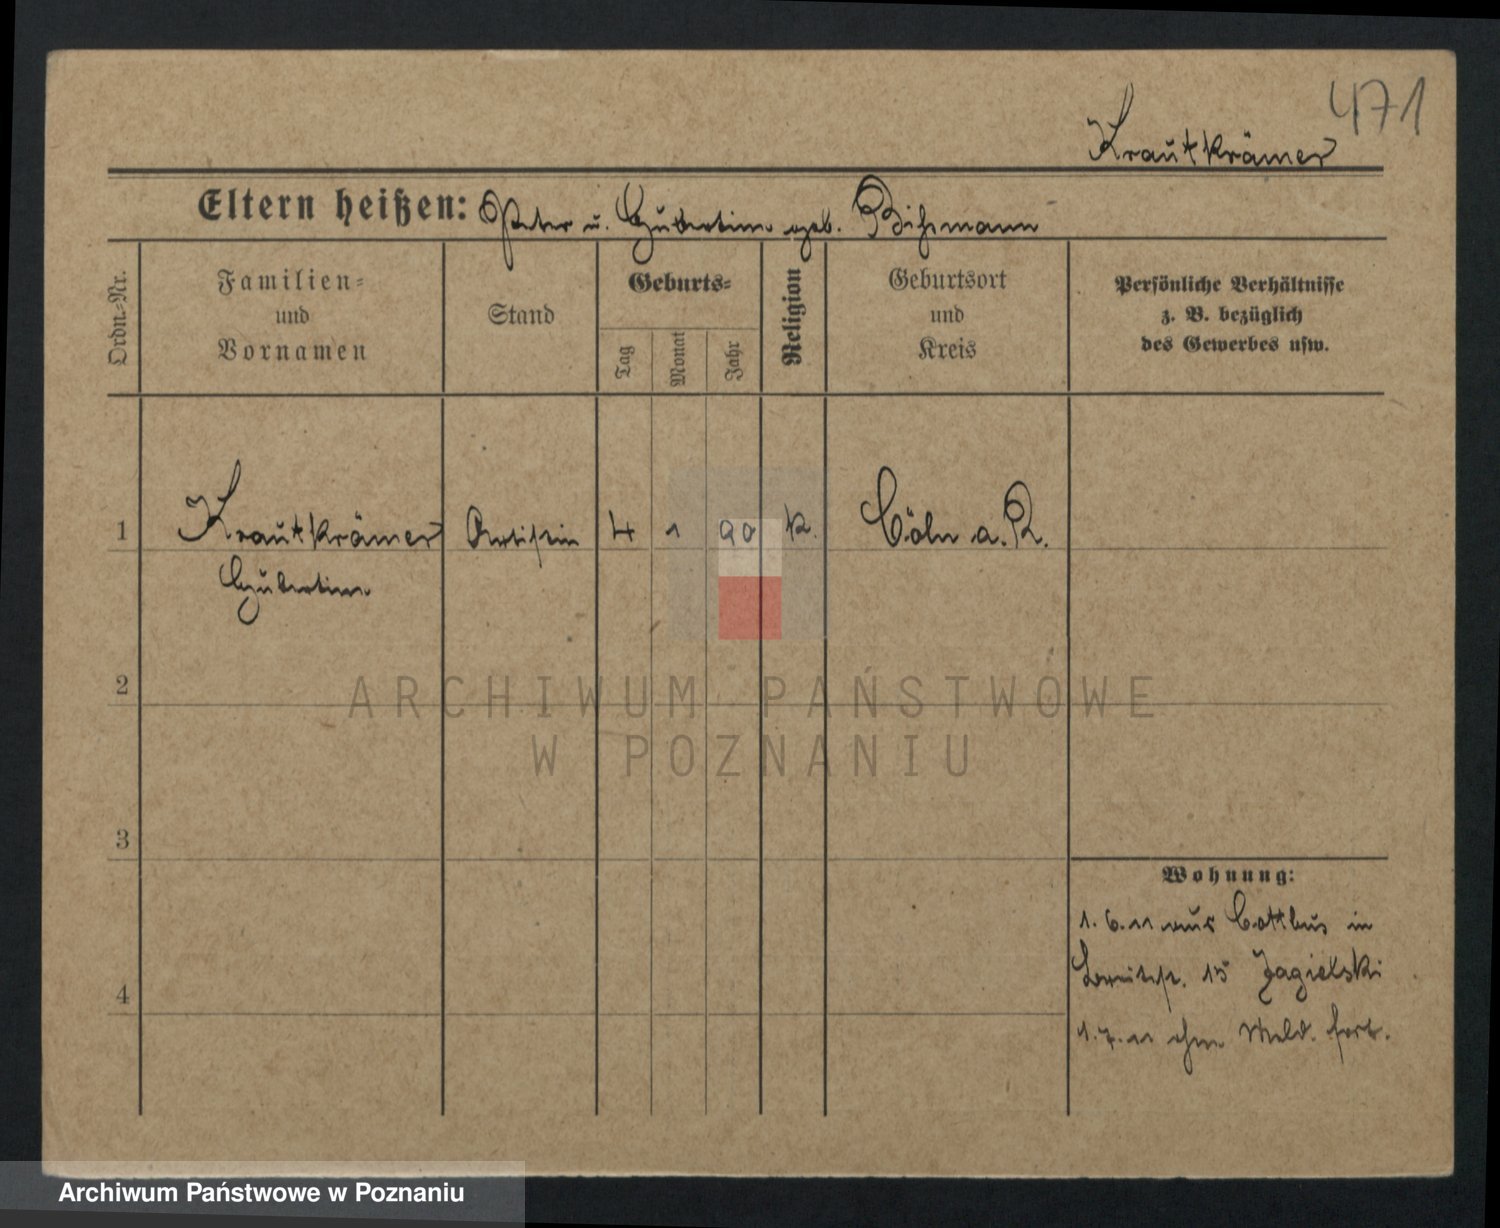 471
Krautkrämer
Eltern heißen: Peter u. Hubertine geb. Bihsmann
Ordn.-Nr.
Familien-
und
Vornamen
Stand
Geburts-
Tag
Monat
Jahr
Religion
Geburtsort
und
Kreis
Persönliche Verhältnisse
z. B. bezüglich
des Gewerbes usw.
1 Krautkrämer Artistin 4 1 90 k. Cöln a. R.
Hubertine
2
ARCHIWUM PAŃSTWOWE
W POZNANIU
3
Wohnung:
1. 6. 11 aus Cottbus in
15 Jagielski
4
1. 7. 11 ohne Meld. fort.
Archiwum Państwowe w Poznaniu